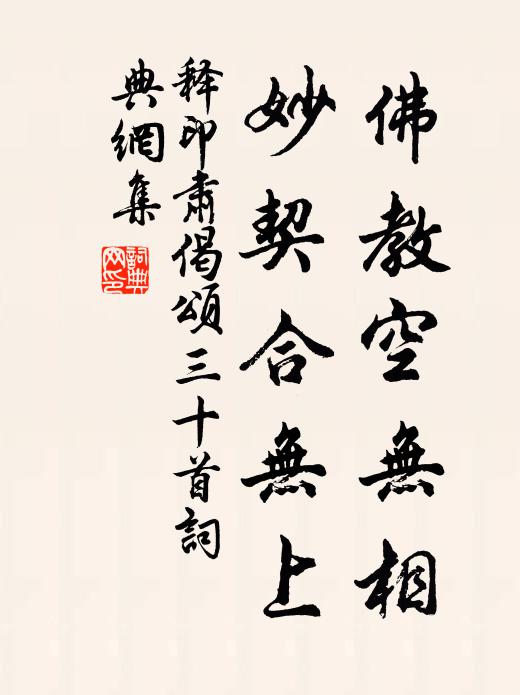 佛教空無相
妙契合無上
释印肅偈頌三十首詞
典網集
詞典網印